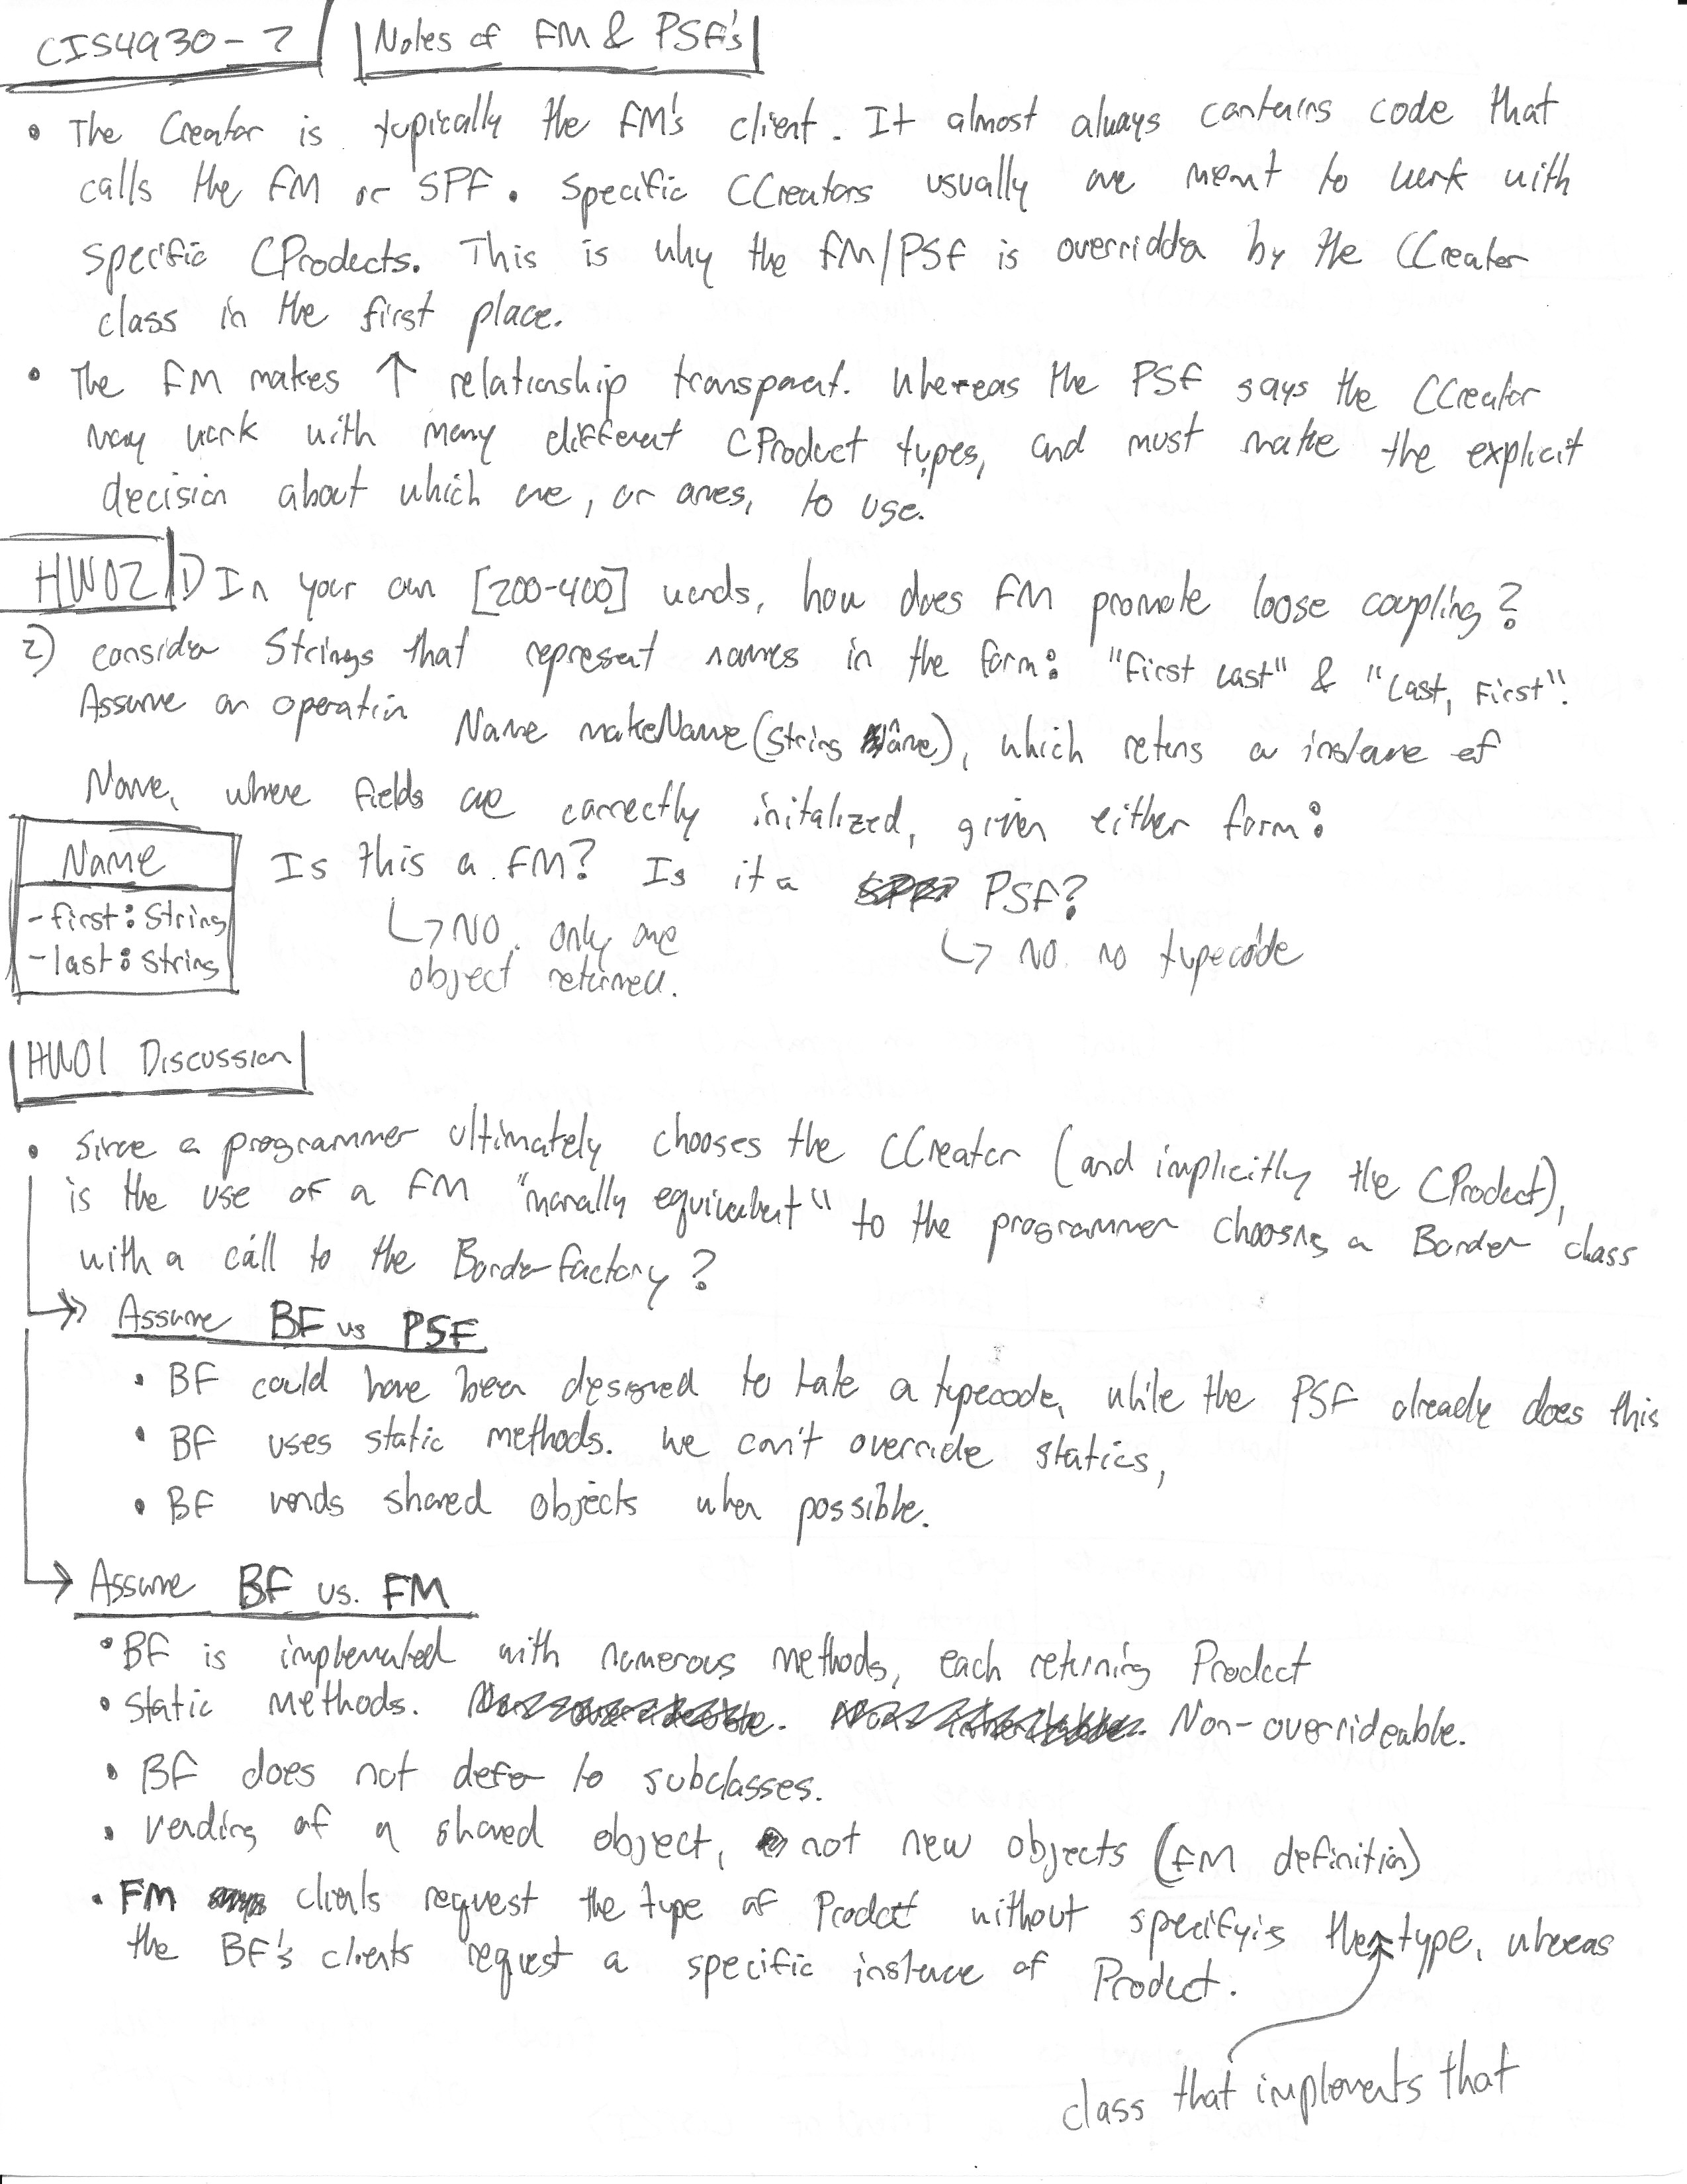 CIS4930-7
Notes of FM & PSF's
• The Creator is typically the FM's client. It almost always contains code that
calls the FM or SPF. Specific CCreators usually are meant to work with
specific CProducts. This is why the FM/PSF is overridden by the CCreator
class in the first place.
• The FM makes ↑ relationship transparent. Whereas the PSF says the CCreator
may work with many different CProduct types, and must make the explicit
decision about which one, or ones, to use.
HW02 1) In your own [200-400] words, how does FM promote loose coupling?
2) consider Strings that represent names in the form: "First Last" & "Last, First".
Assume an operation Name makeName(String Name), which returns a instance of
Name, where fields are correctly initalized, given either form:
Name
-first: String
-last: String
Is this a FM? Is it a PSF?
↳ NO. only one
object returned.
↳ NO. no typecode
HW01 Discussion
• Since a programmer ultimately chooses the CCreator (and implicitly the CProduct),
is the use of a FM "morally equivalent" to the programmer choosing a Border class
with a call to the BorderFactory?
→ Assume BF vs PSF
• BF could have been designed to take a typecode, while the PSF already does this
• BF uses static methods. We can't override statics,
• BF vends shared objects when possible.
→ Assume BF vs. FM
• BF is implemented with numerous methods, each returning Product
• Static Methods. Non-overrideable.
• BF does not defer to subclasses.
• Vending of a shared object, not new objects (FM definition)
• FM clients request the type of Product without specifying the type, whereas
the BF's clients request a specific instance of Product.
class that implements that